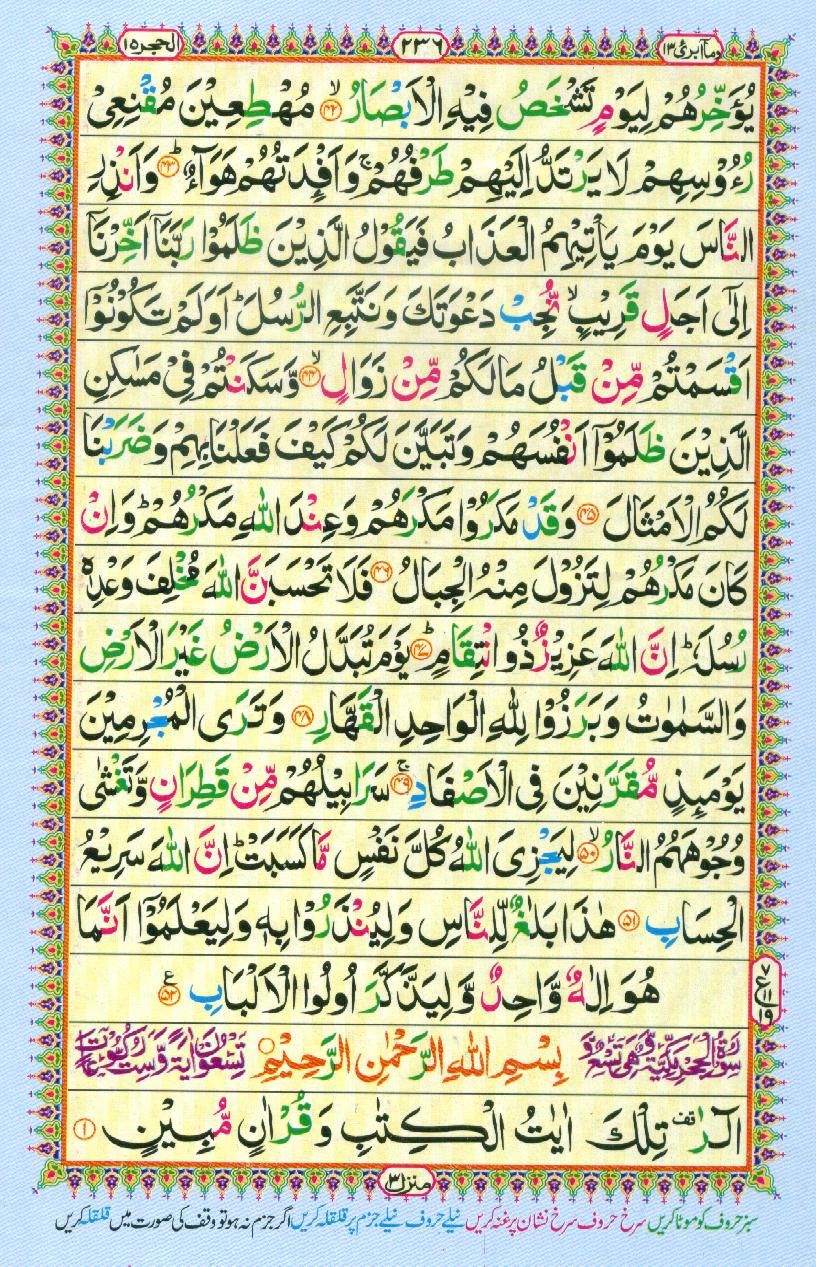 وما ابرئ ۱۳ ۲۳۶ الحجر ۱۵
يُؤَخِّرُهُمْ لِيَوْمٍ تَشْخَصُ فِيْهِ الْاَبْصَارُ ۙ﴿۴۲﴾ مُهْطِعِيْنَ مُقْنِعِیْ
رُءُوْسِهِمْ لَا يَرْتَدُّ اِلَيْهِمْ طَرْفُهُمْ ۚ وَاَفْـِٕدَتُهُمْ هَوَآءٌ ؕ﴿۴۳﴾ وَاَنْذِرِ
النَّاسَ يَوْمَ يَاْتِيْهِمُ الْعَذَابُ فَيَقُوْلُ الَّذِيْنَ ظَلَمُوْا رَبَّنَاۤ اَخِّرْنَاۤ
اِلٰۤى اَجَلٍ قَرِيْبٍ ۙ نُّجِبْ دَعْوَتَكَ وَنَتَّبِعِ الرُّسُلَ ؕ اَوَلَمْ تَكُوْنُوْۤا
اَقْسَمْتُمْ مِّنْ قَبْلُ مَا لَكُمْ مِّنْ زَوَالٍ ۙ﴿۴۴﴾ وَّسَكَنْتُمْ فِیْ مَسٰكِنِ
الَّذِيْنَ ظَلَمُوْۤا اَنْفُسَهُمْ وَتَبَيَّنَ لَكُمْ كَيْفَ فَعَلْنَا بِهِمْ وَضَرَبْنَا
لَكُمُ الْاَمْثَالَ ﴿۴۵﴾ وَقَدْ مَكَرُوْا مَكْرَهُمْ وَعِنْدَ اللّٰهِ مَكْرُهُمْ ؕ وَاِنْ
كَانَ مَكْرُهُمْ لِتَزُوْلَ مِنْهُ الْجِبَالُ ﴿۴۶﴾ فَلَا تَحْسَبَنَّ اللّٰهَ مُخْلِفَ وَعْدِهٖ
رُسُلَهٗ ؕ اِنَّ اللّٰهَ عَزِيْزٌ ذُو انْتِقَامٍ ؕ﴿۴۷﴾ يَوْمَ تُبَدَّلُ الْاَرْضُ غَيْرَ الْاَرْضِ
وَالسَّمٰوٰتُ وَبَرَزُوْا لِلّٰهِ الْوَاحِدِ الْقَهَّارِ ﴿۴۸﴾ وَتَرَى الْمُجْرِمِيْنَ
يَوْمَىِٕذٍ مُّقَرَّنِيْنَ فِى الْاَصْفَادِ ۚ﴿۴۹﴾ سَرَابِيْلُهُمْ مِّنْ قَطِرَانٍ وَّتَغْشٰى
وُجُوْهَهُمُ النَّارُ ۙ﴿۵۰﴾ لِيَجْزِىَ اللّٰهُ كُلَّ نَفْسٍ مَّا كَسَبَتْ ؕ اِنَّ اللّٰهَ سَرِيْعُ
الْحِسَابِ ﴿۵۱﴾ هٰذَا بَلٰغٌ لِّلنَّاسِ وَلِيُنْذَرُوْا بِهٖ وَلِيَعْلَمُوْۤا اَنَّمَا
هُوَ اِلٰهٌ وَّاحِدٌ وَّلِيَذَّكَّرَ اُولُوا الْاَلْبَابِ ﴿۵۲﴾ ع
۷ ع ۱۱ ۱۹
سُوْرَةُ الْحِجْرِ مَكِّيَّةٌ وَّهِىَ تِسْعٌ وَّ بِسْمِ اللّٰهِ الرَّحْمٰنِ الرَّحِيْمِ تِسْعُوْنَ اٰيَةً وَّسِتُّ رُكُوْعَاتٍ
الٓرٰ قف تِلْكَ اٰيٰتُ الْكِتٰبِ وَقُرْاٰنٍ مُّبِيْنٍ ﴿۱﴾
منزل ۳
سبز حروف کو موٹا کریں سرخ حروف سرخ نشان پر غنہ کریں نیلے حروف نیلے جزم پر قلقلہ کریں اگر جزم نہ ہو تو وقف کی صورت میں قلقلہ کریں